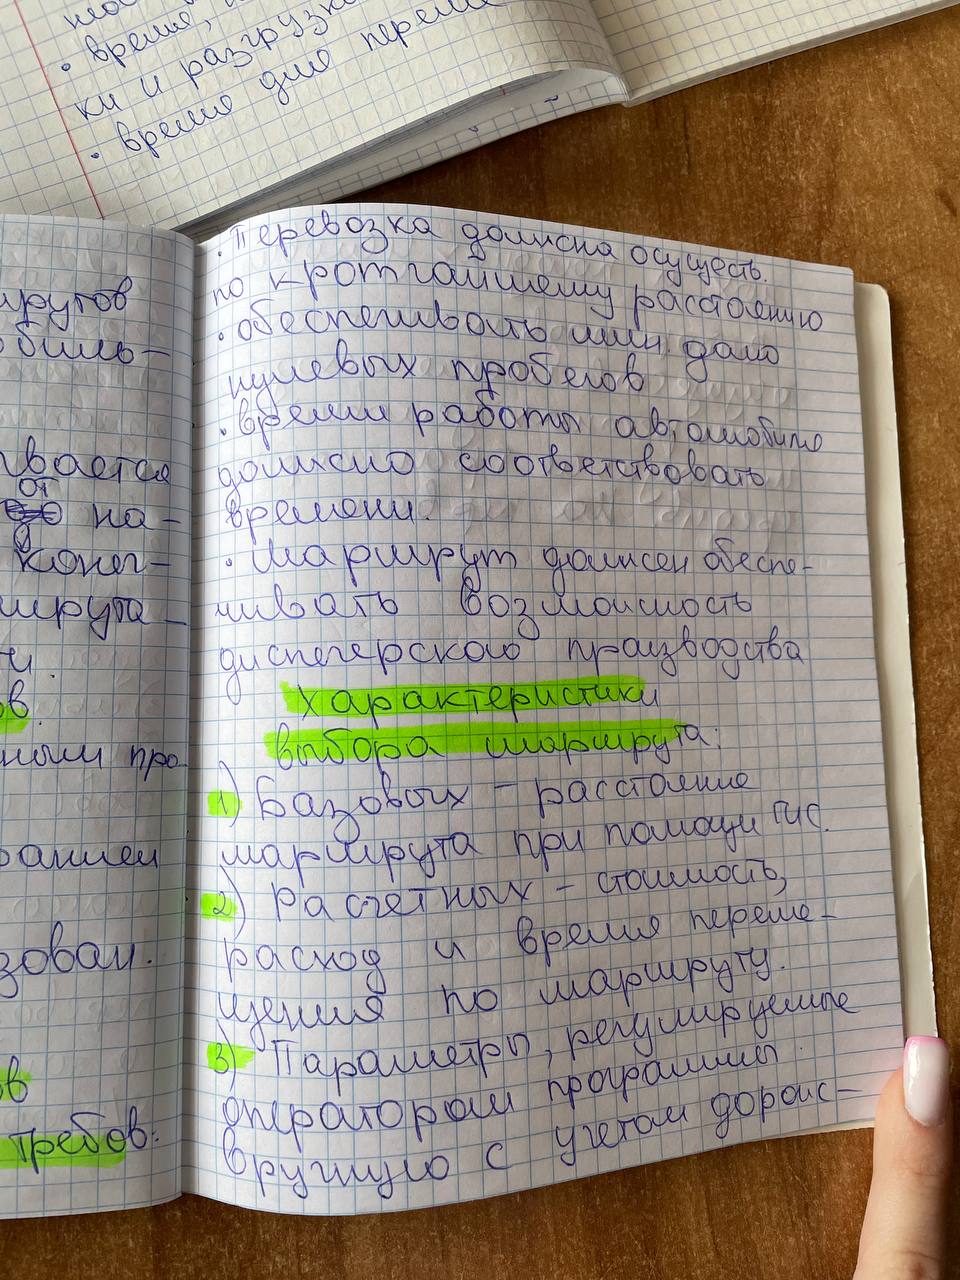 время,
ки и разгрузк
• время для переме
шрутов
обиль-
ивается
от
на-
конеч-
шрута-
ов.
ными про
ранием
зован.
ов
требов:
• Перевозка должна осуществ.
по кротчайшему расстоянию
• обеспечивать мин. долю
нулевых пробегов
• время работы автомобиля
должно соответствовать
времени.
• Маршрут должен обеспе-
чивать возможность
диспечерского производства
Характеристики
выбора маршрута:
1) Базовых - расстояние
маршрута при помощи ГИС.
2) Расчетных - стоимость,
расход и время переме-
щения по маршруту.
3) Параметры, регулируемые
оператором программы
вручную с учетом дорож-